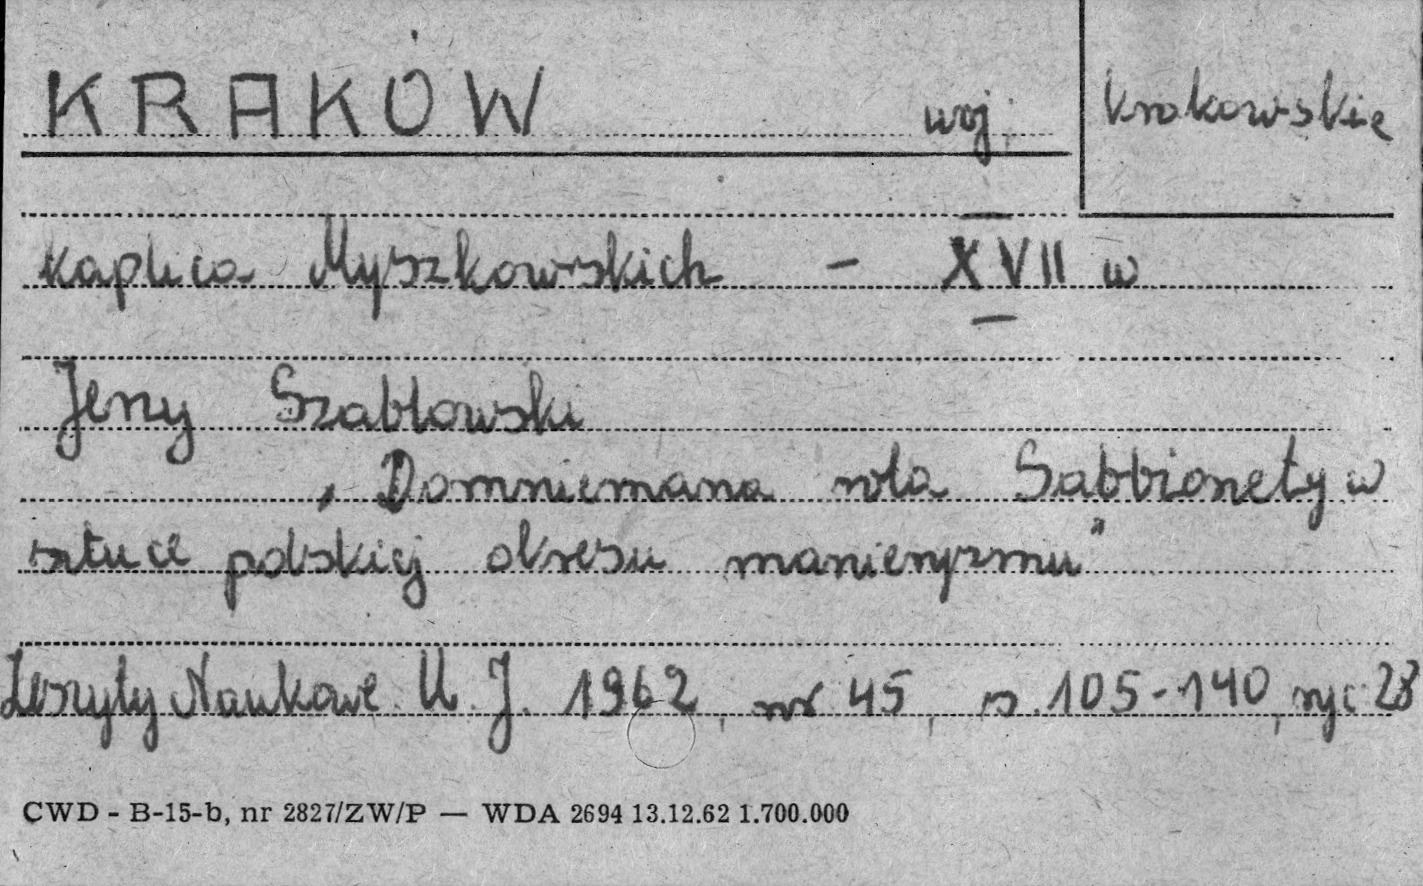 KRAKÓW woj. krakowskie
kaplica Myszkowskich - XVII w
Jerzy Szabłowski
„Domniemana rola Sabbionety w
sztuce polskiej okresu manieryzmu"
Zeszyty Naukowe U.J. 1962, nr 45, s. 105-140, ryc 28
CWD - B-15-b, nr 2827/ZW/P — WDA 2694 13.12.62 1.700.000